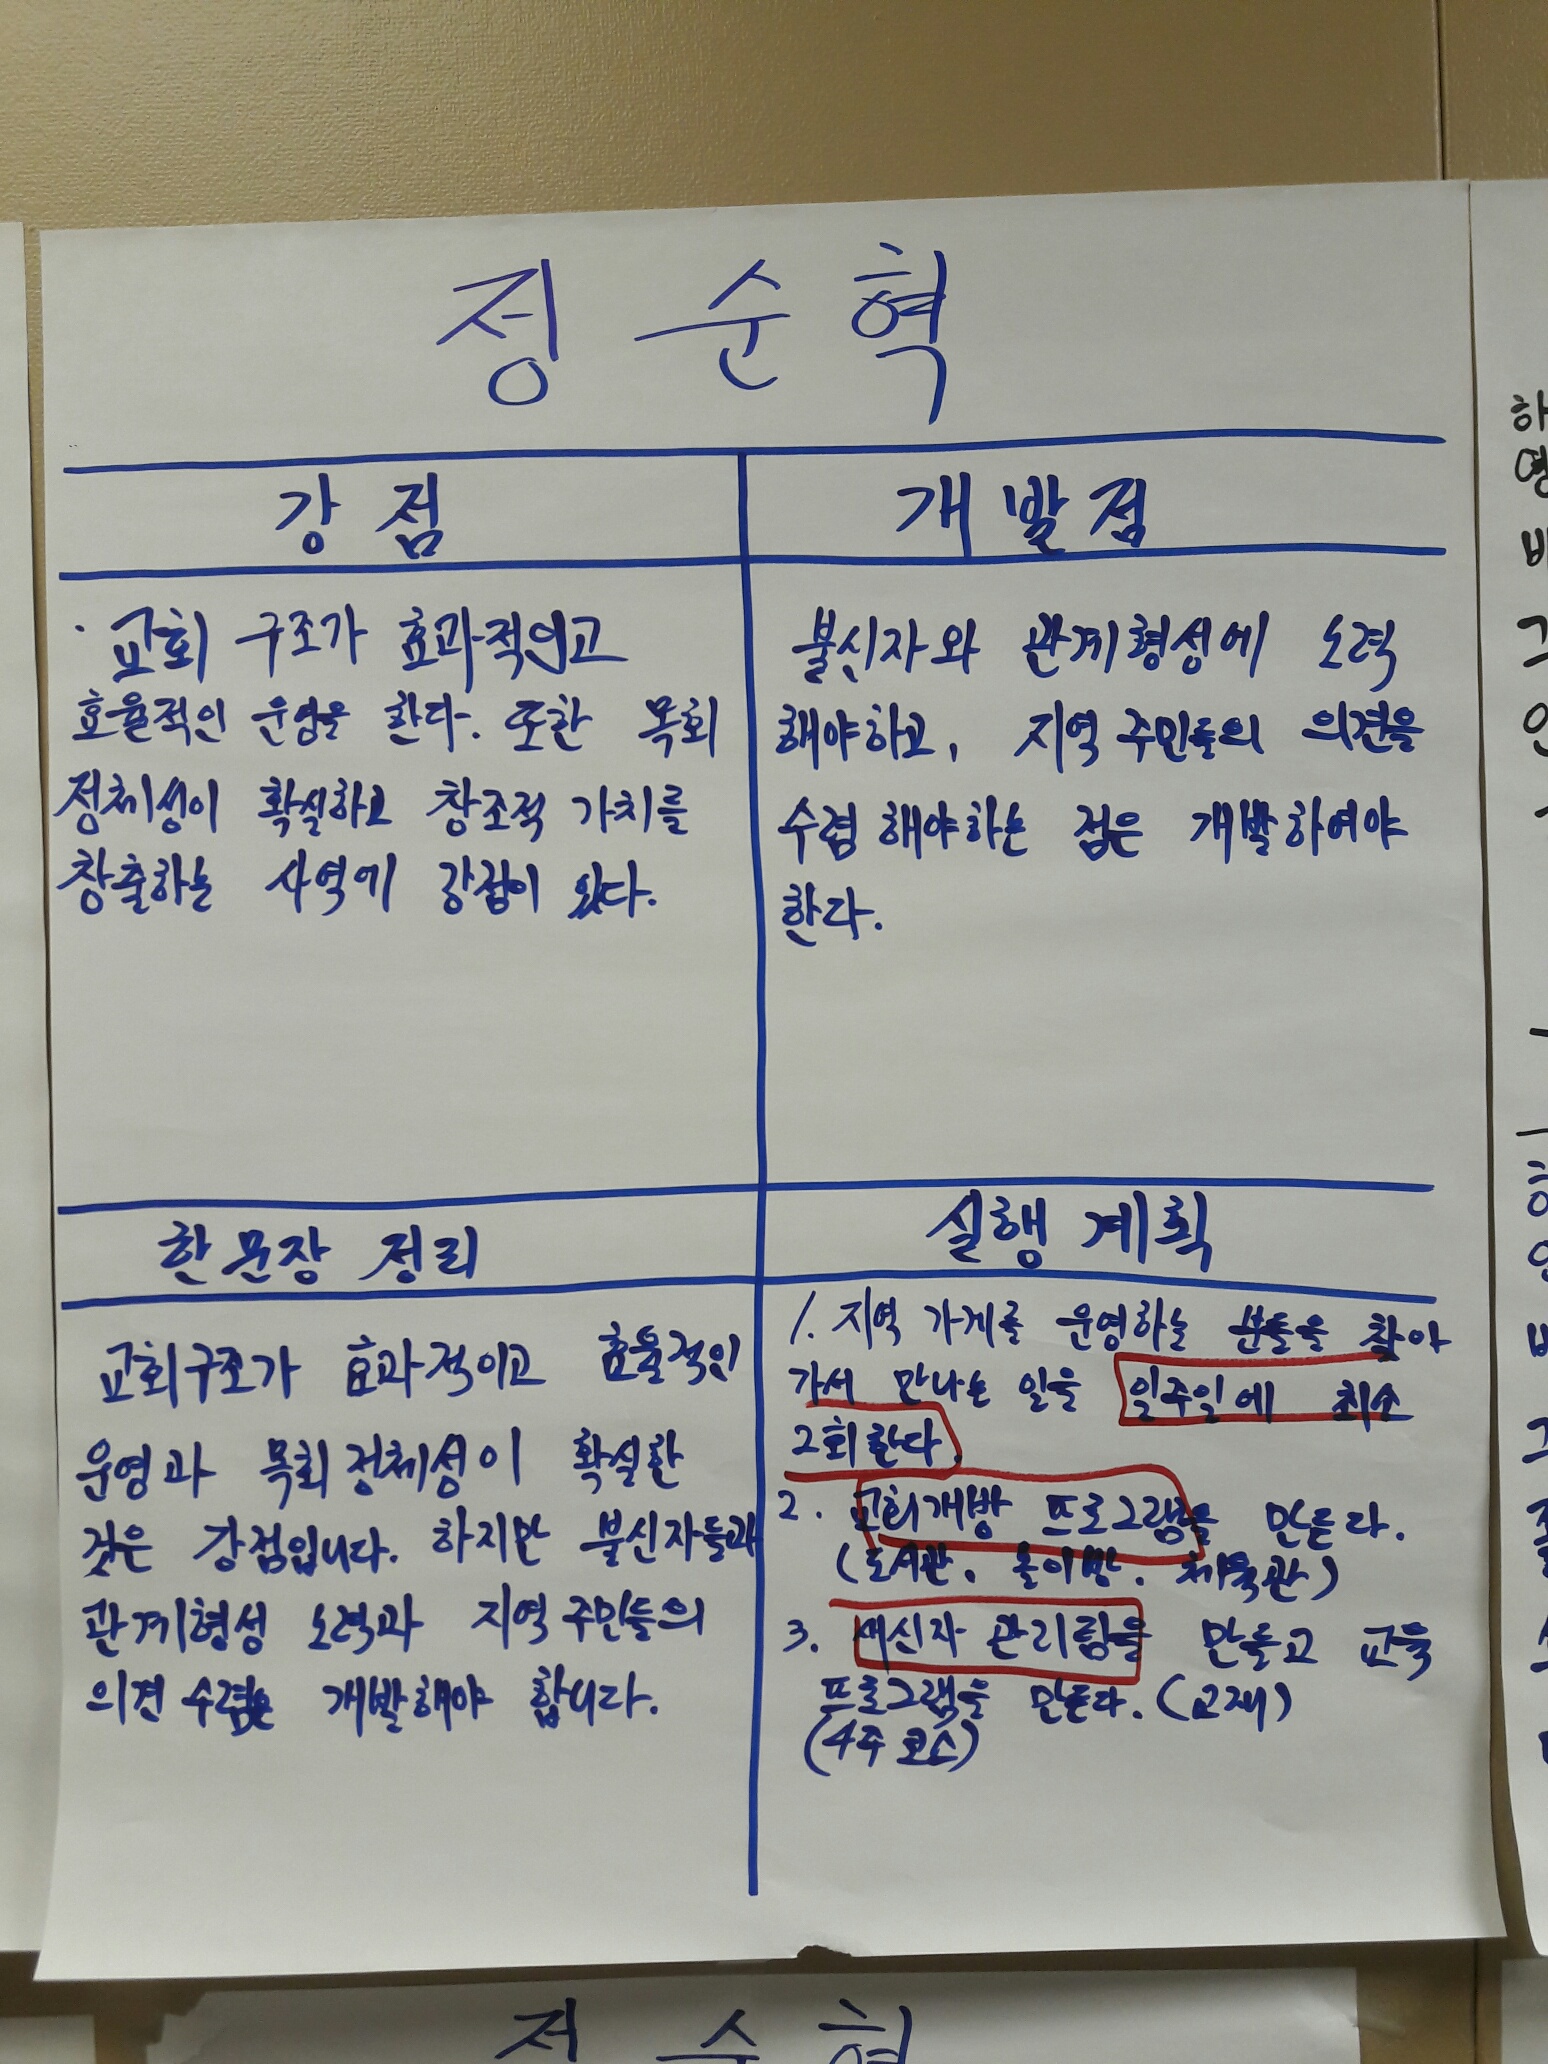 정 순 혁
강 점
개 발 점
· 교회 구조가 효과적이고
효율적인 운영을 한다. 또한 목회
정체성이 확실하고 창조적 가치를
창출하는 사역에 강점이 있다.
불신자와 관계형성에 노력
해야하고, 지역 주민들의 의견을
수렴 해야하는 점은 개발하여야
한다.
한 문장 정리
교회구조가 효과적이고 효율적인
운영과 목회 정체성이 확실한
것은 강점입니다. 하지만 불신자들과
관계형성 노력과 지역 주민들의
의견 수렴은 개발해야 합니다.
실행 계획
1. 지역 가게를 운영하는 분들을 찾아
가서 만나는 일을 일주일에 최소
2회 한다.
2. 교회개방 프로그램을 만든다.
(도서관, 놀이방, 체육관)
3. 새신자 관리팀을 만들고 교육
프로그램을 만든다. (교재)
(4주 코스)
정 순 혁